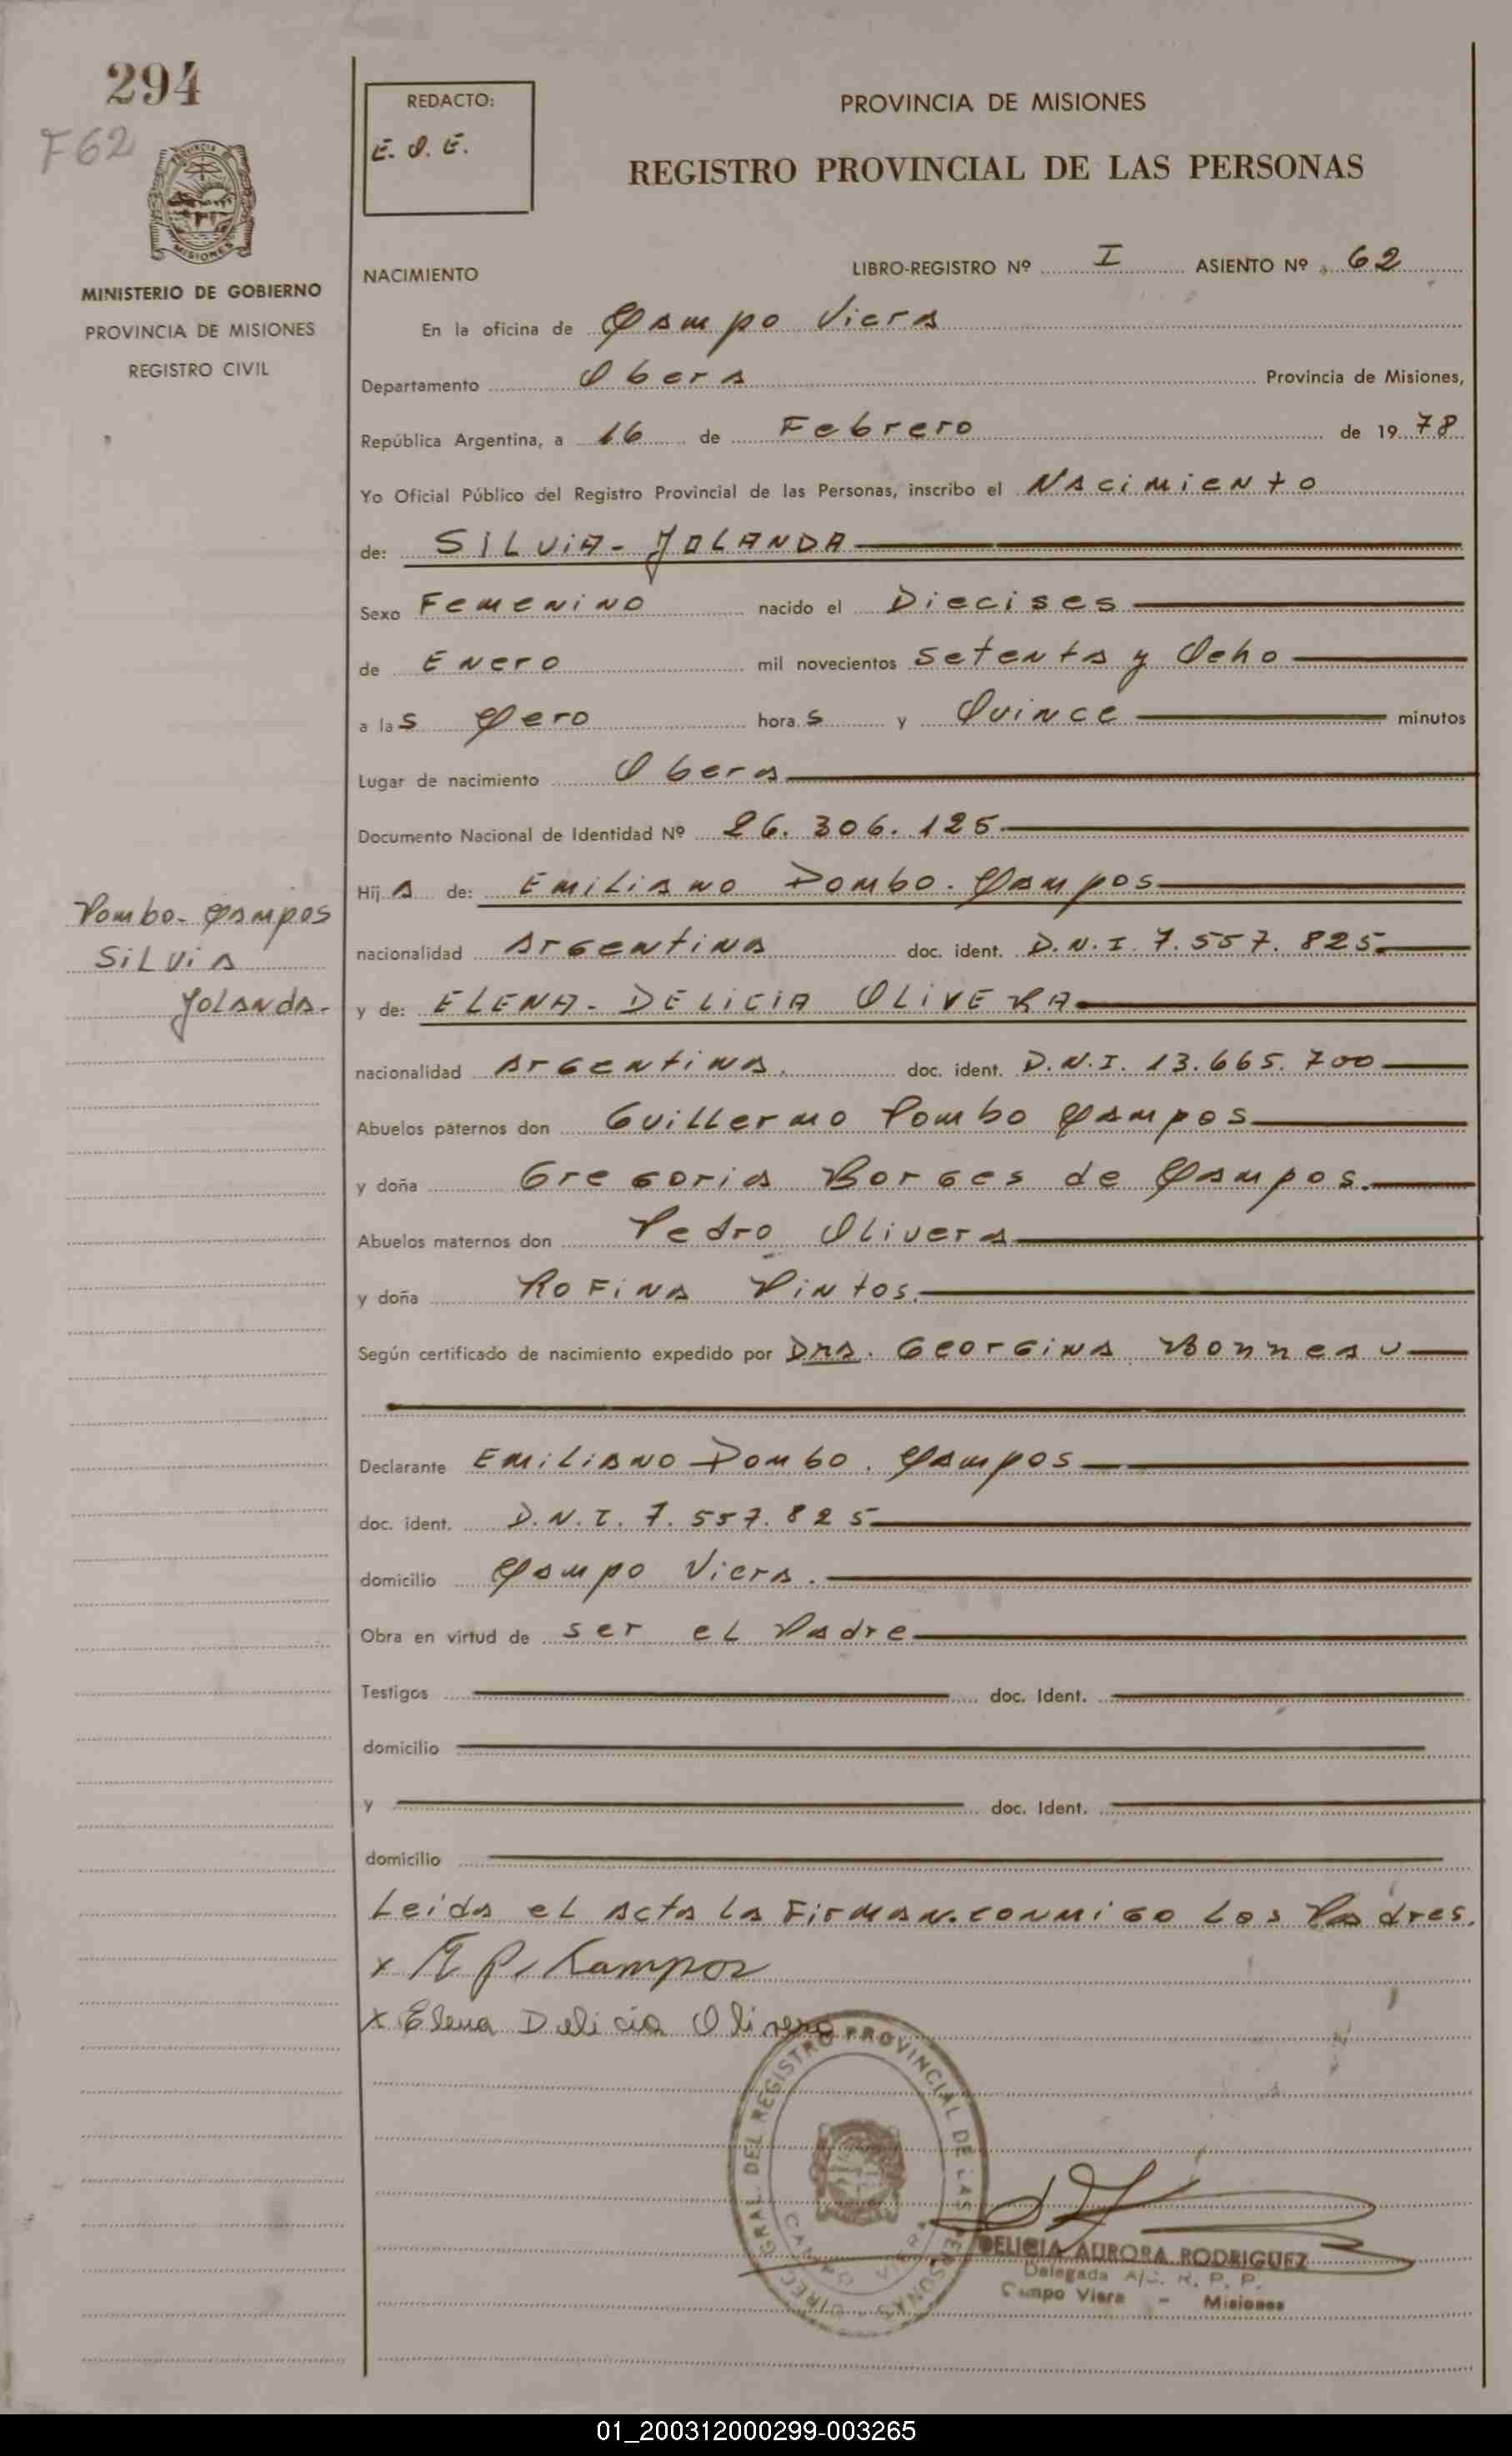 294
F62
REDACTO:
E. O. E.
PROVINCIA DE MISIONES
REGISTRO PROVINCIAL DE LAS PERSONAS
MISIONES
MINISTERIO DE GOBIERNO
PROVINCIA DE MISIONES
REGISTRO CIVIL
LIBRO-REGISTRO Nº I ASIENTO Nº 62
NACIMIENTO
En la oficina de Campo Viera
Departamento Obera Provincia de Misiones,
República Argentina, a 16 de Febrero de 1978
Yo Oficial Público del Registro Provincial de las Personas, inscribo el Nacimiento
de: SILVIA - YOLANDA
Sexo Femenino nacido el Diecises
de Enero mil novecientos setenta y Ocho
a las Cero horas y Quince minutos
Lugar de nacimiento Obera
Documento Nacional de Identidad Nº 26.306.125
Hija de: Emiliano Pombo. Campos
Pombo - Campos
Silvia
Yolanda.-
nacionalidad Argentina doc. ident. D.N.I. 7.557.825
y de: ELENA - DELICIA OLIVERA
nacionalidad Argentina. doc. ident. D.N.I. 13.665.700
Abuelos paternos don Guillermo Pombo Campos
y doña Gregoria Borges de Campos.
Abuelos maternos don Pedro Olivera
y doña Rofina Pintos.
Según certificado de nacimiento expedido por Dra. Georgina Bonneau
Declarante Emiliano Pombo. Campos
doc. ident. D.N.I. 7.557.825
domicilio Campo Viera.
Obra en virtud de ser el Padre
Testigos doc. Ident.
domicilio
y doc. Ident.
domicilio
Leida el acta la Firman conmigo los Padres.
x E P. Campos
x Elena Delicia Olivera
DIREC. GRAL. DEL REGISTRO PROVINCIAL DE LAS PERSONAS
CAMPO VIERA
DELICIA AURORA RODRIGUEZ
Delegada A/C. R. P. P.
Campo Viera - Misiones
01_200312000299-003265